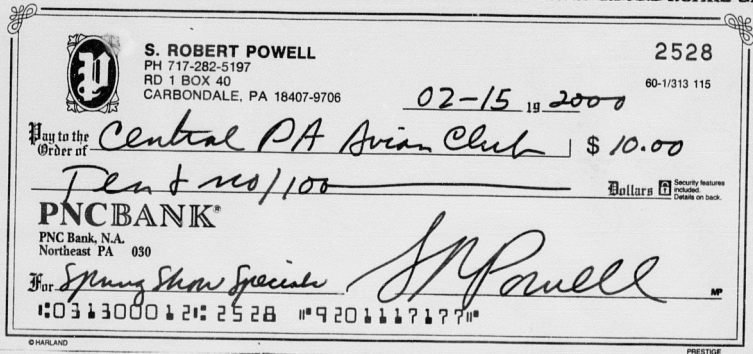 S. ROBERT POWELL
PH 717-282-5197
RD 1 BOX 40
CARBONDALE, PA 18407-9706
2528
60-1/313 115
02-15 19 2000
Pay to the Order of Central PA Avian Club $ 10.00
Ten & no/100 Dollars
Security features included. Details on back.
PNCBANK
PNC Bank, N.A.
Northeast PA 030
For Spring Show Specials
S R Powell
MP
⑆031300012⑆ 2528 ⑈9201117177⑈
© HARLAND
PRESTIGE